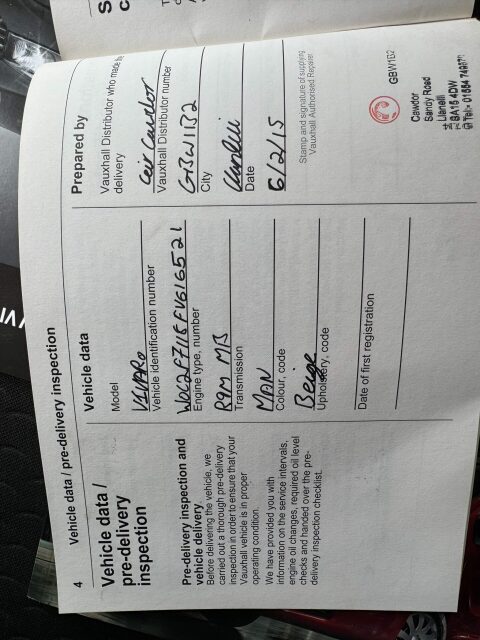 4
Vehicle data / pre-delivery inspection
Vehicle data /
pre-delivery
inspection
Pre-delivery inspection and
vehicle delivery
Before delivering the vehicle, we
carried out a thorough pre-delivery
inspection in order to ensure that your
Vauxhall vehicle is in proper
operating condition.
We have provided you with
information on the service intervals,
engine oil changes, required oil level
checks and handed over the pre-
delivery inspection checklist.
Vehicle data
Model
VIVARO
Vehicle identification number
Engine type, number
R9M
Transmission
MAN
Colour, code
Beige
Upholstery, code
Date of first registration
Prepared by
Vauxhall Distributor who made
delivery
Ceir Cawdor
Vauxhall Distributor number
GBW1132
City
Llanelli
Date
6/2/15
Stamp and signature of supplying
Vauxhall Authorised Repairer
GBW1132
Cawdor
Sandy Road
Llanelli
SA15 4DW
Tel: